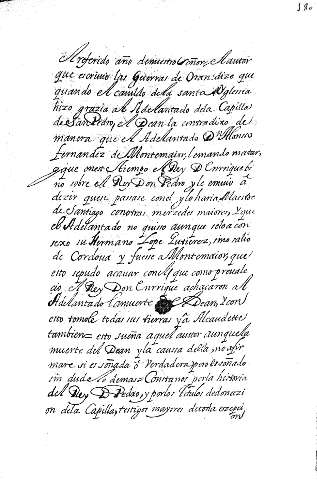 180
El referido año de nuestro Señor, el autor
que escrivio las Guerras de Oran: dizo que
quando el cavildo de la santa Yglesia
hizo grazia al Adelantado de la Capilla
de San Pedro, el Dean la contradixo de
manera que el Adelantado Dn Alonso
Fernandez de Montemaior, le mando matar,
y que en este tiempo el Rey D Enrrique
no sobre el Rey Don Pedro y le embio á
dezir que se pasase con el y lo haria Maestre
de Santiago con otras mercedes maiores, y que
el Adelantado no quiso aunque
su Hermano Lope Gutierez, se salio
de Cordova y fuese a Montemaior, que
esto se pudo acavar con el, que como prevale
cio el Rey Don Enrrique achacaron al
Adelantado la muerte del Dean, y con
esto tomole todas sus tierras y a Alcaudette
tambien = esto sueña aquel autor aunque la
muerte del Dean y la causa della, no afir
mare si es soñada ó verdadera, pero es soñado
sin duda lo demas Constanos por la historia
del Rey D Pedro, y por los titulos de donazi
on de la Capilla, y testigos mayores de toda excepci
on